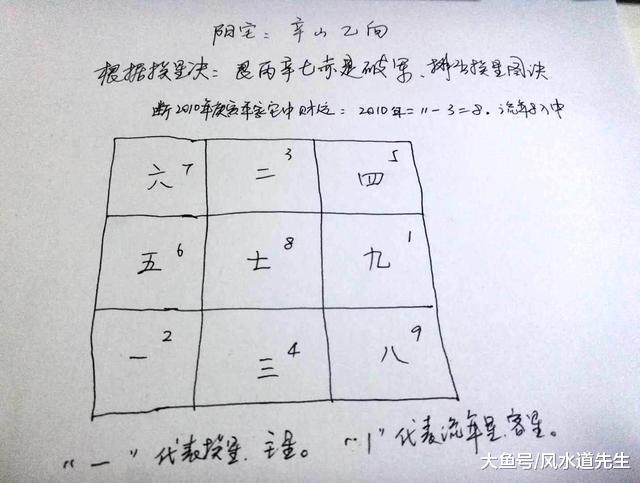 阳宅：辛山乙向
根据挨星决：艮丙辛七赤是破军、排出挨星图诀
断2010年庚寅年家宅中财位：2010年=11-3=8.流年8入中
六 7 二 3 四 5
五 6 七 8 九 1
一 2 三 4 八 9
“一”代表挨星、主星。“1”代表流年星、客星。
大鱼号/风水道先生